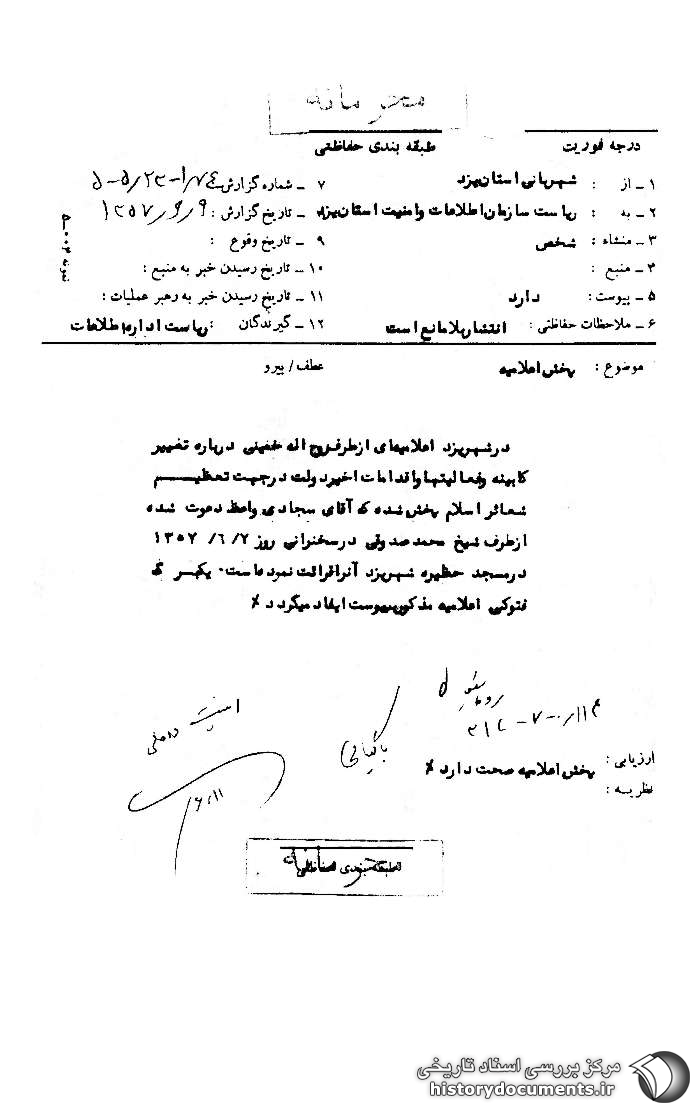 محرمانه
درجه فوریت
طبقه بندی حفاظتی
۱ ـ از : شهربانی استان یزد
۲ ـ به : ریاست سازمان اطلاعات و امنیت استان یزد
۳ ـ منشاء : شخص
۴ ـ منبع :
۵ ـ پیوست : دارد
۶ ـ ملاحظات حفاظتی : انتشار بلامانع است
۷ ـ شماره گزارش
۸ ـ تاریخ گزارش : ۱۳۵۷/۶/۹
۹ ـ تاریخ وقوع :
۱۰ ـ تاریخ رسیدن خبر به منبع :
۱۱ ـ تاریخ رسیدن خبر به رهبر عملیات :
۱۲ ـ گیرندگان : ریاست اداره اطلاعات
نمونه ۰۰۴ـ۵
موضوع : پخش اعلامیه
عطف / پیرو
در شهر یزد اعلامیه‌ای از طرف روح اله خمینی درباره تغییر
کابینه و فعالیتها و اقدامات اخیر دولت در جهت تعظیم
شعائر اسلام پخش شده که آقای سجادی واعظ دعوت شده
از طرف شیخ محمد صدوقی در سخنرانی روز ۱۳۵۷/۶/۷
در مسجد حظیره شهر یزد آنرا قرائت نموده است. یکبرگ
فتوکپی اعلامیه مذکور بپیوست ایفاد میگردد ٪
امنیت داخلی
بایگانی
۶/۱۱
ارزیابی : پخش اعلامیه صحت دارد ٪
نظریه :
طبقه بندی حفاظتی
محرمانه
مرکز بررسی اسناد تاریخی
historydocuments.ir